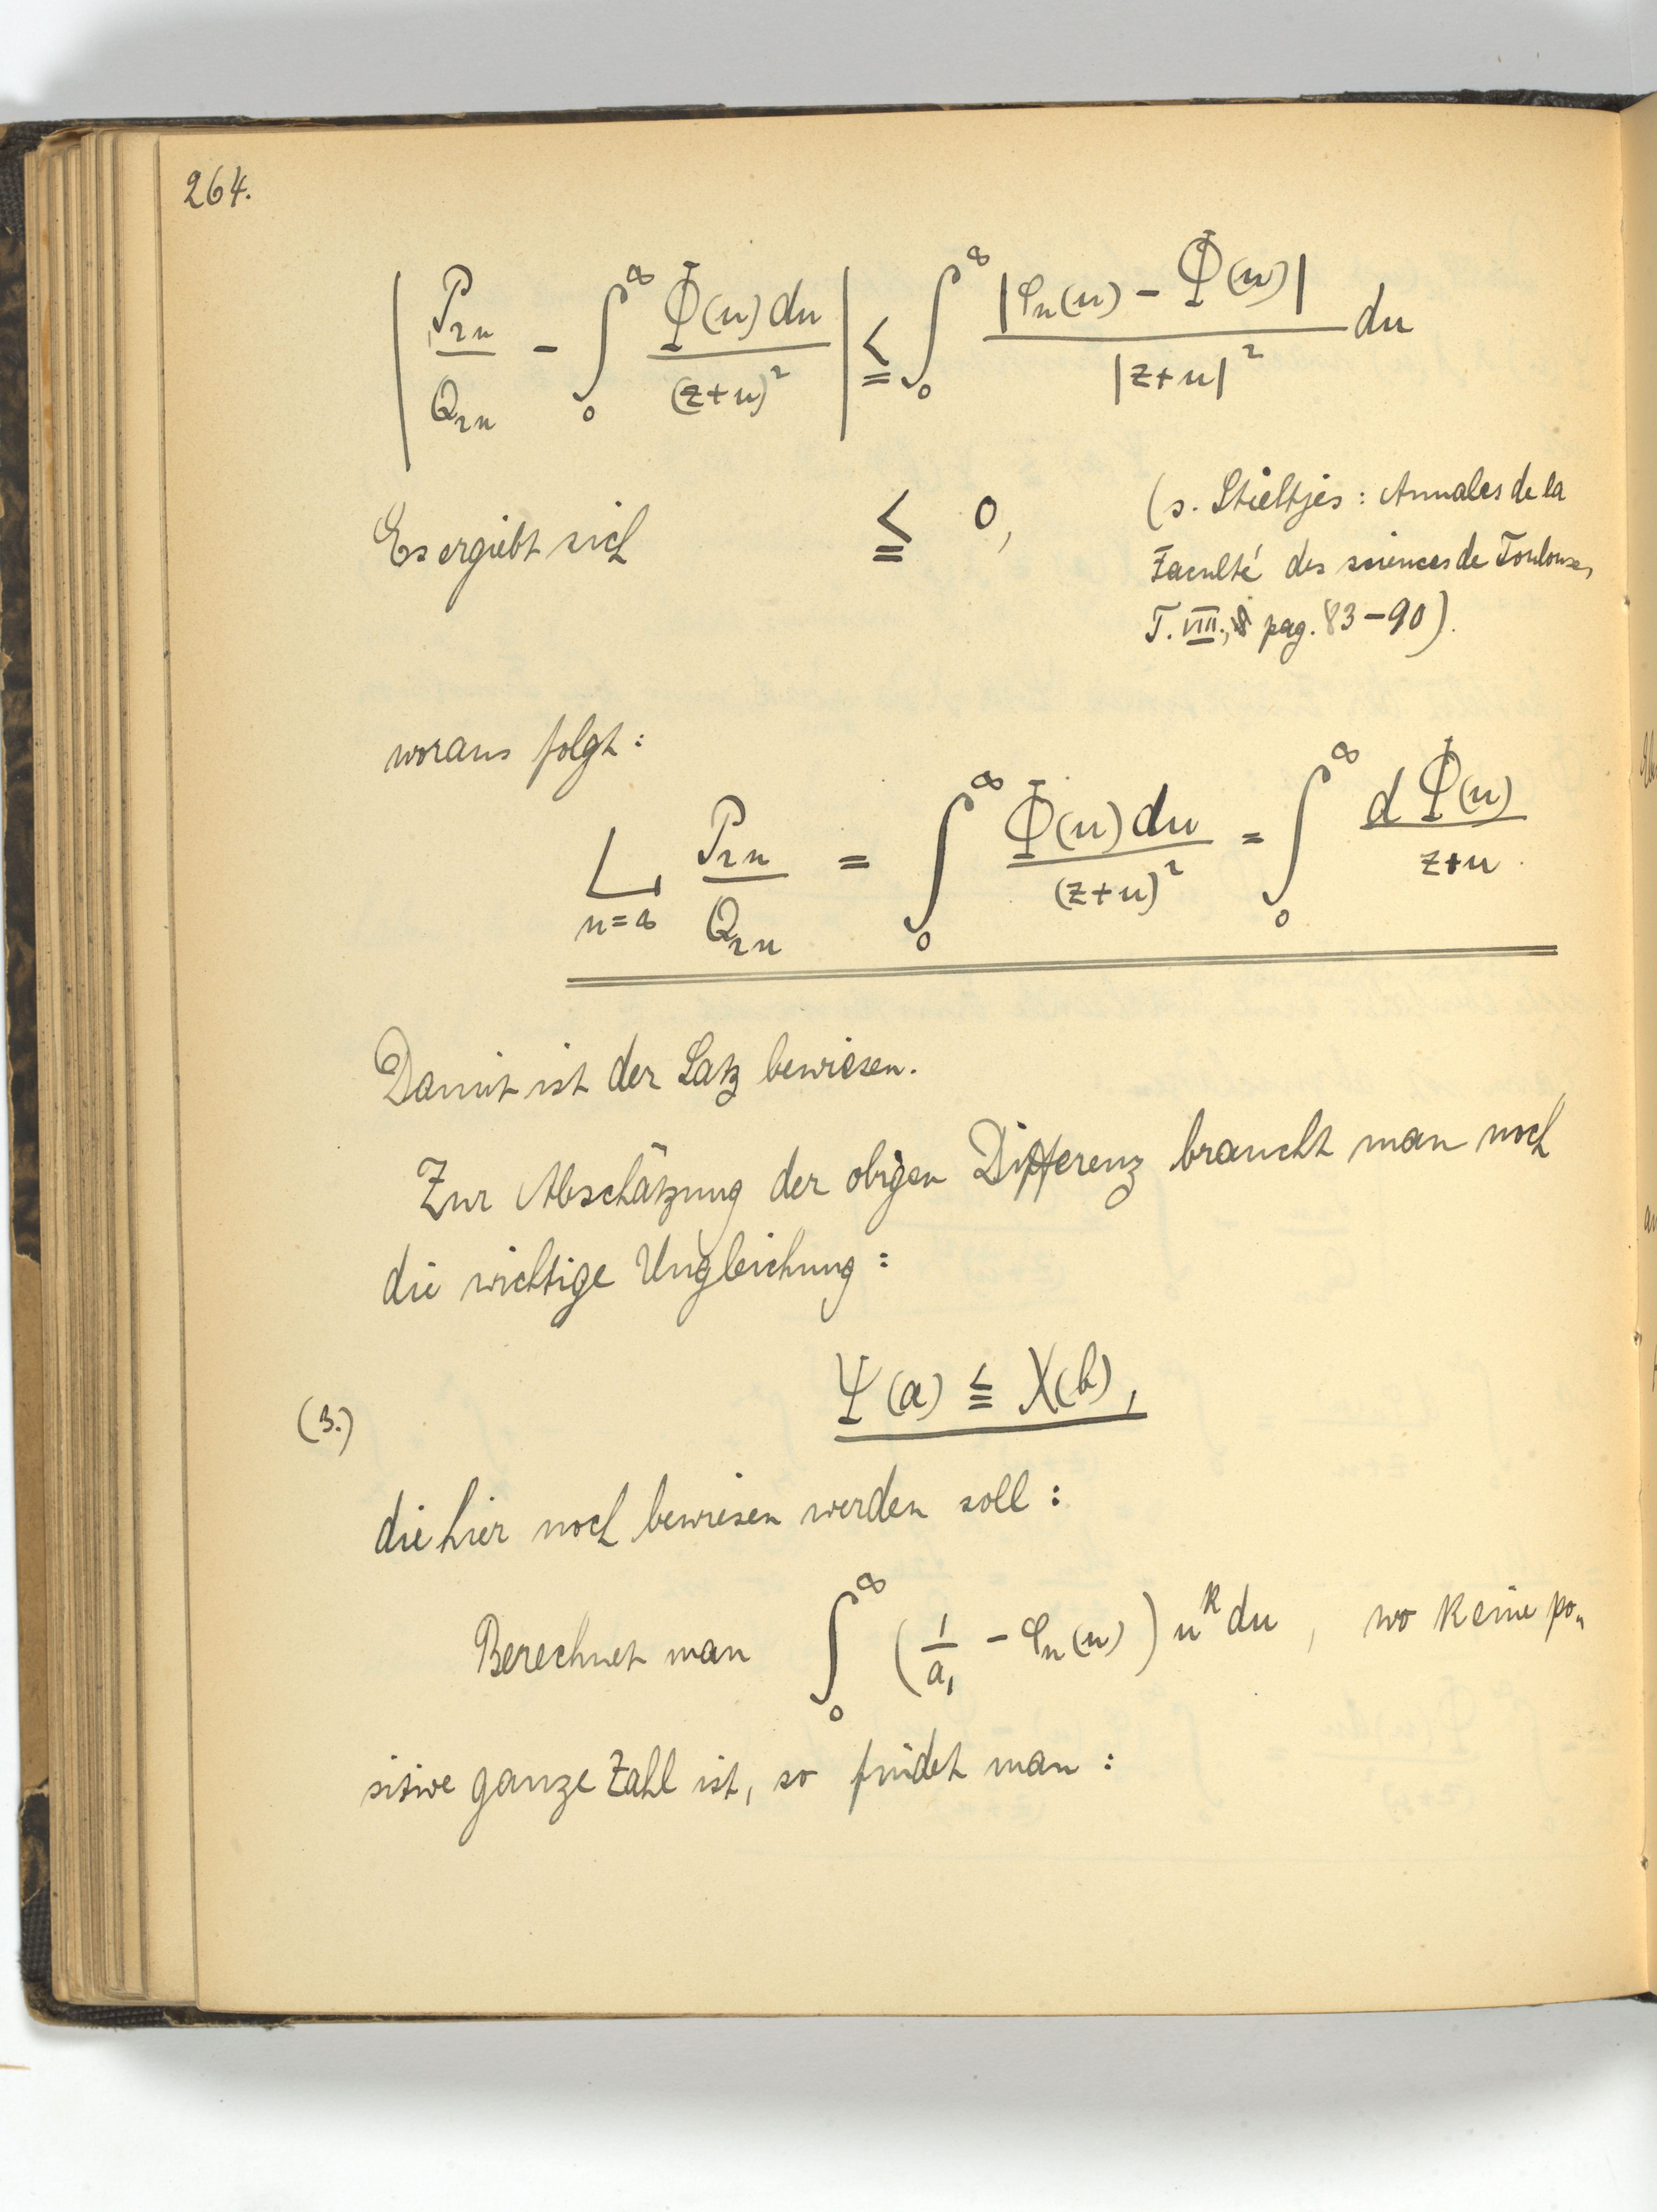 264.
| P₂ₙ/Q₂ₙ − ∫₀^∞ Φ(u)du/(z+u)² | ≦ ∫₀^∞ |φₙ(u) − Φ(u)|/|z+u|² du
Es ergiebt sich ≦ 0, (s. Stieltjes: Annales de la
Faculté des sciences de Toulouse,
T. VIII., pag. 83–90).
woraus folgt:
L_{n=∞} P₂ₙ/Q₂ₙ = ∫₀^∞ Φ(u)du/(z+u)² = ∫₀^∞ dΦ(u)/z+u.
Damit ist der Satz bewiesen.
Zur Abschätzung der obigen Differenz braucht man noch
die wichtige Ungleichung:
(3.) Ψ(a) ≦ X(b),
die hier noch bewiesen werden soll:
Berechnet man ∫₀^∞ (1/a₁ − φₙ(u)) uᵏ du, wo k eine po„
sitive ganze Zahl ist, so findet man: